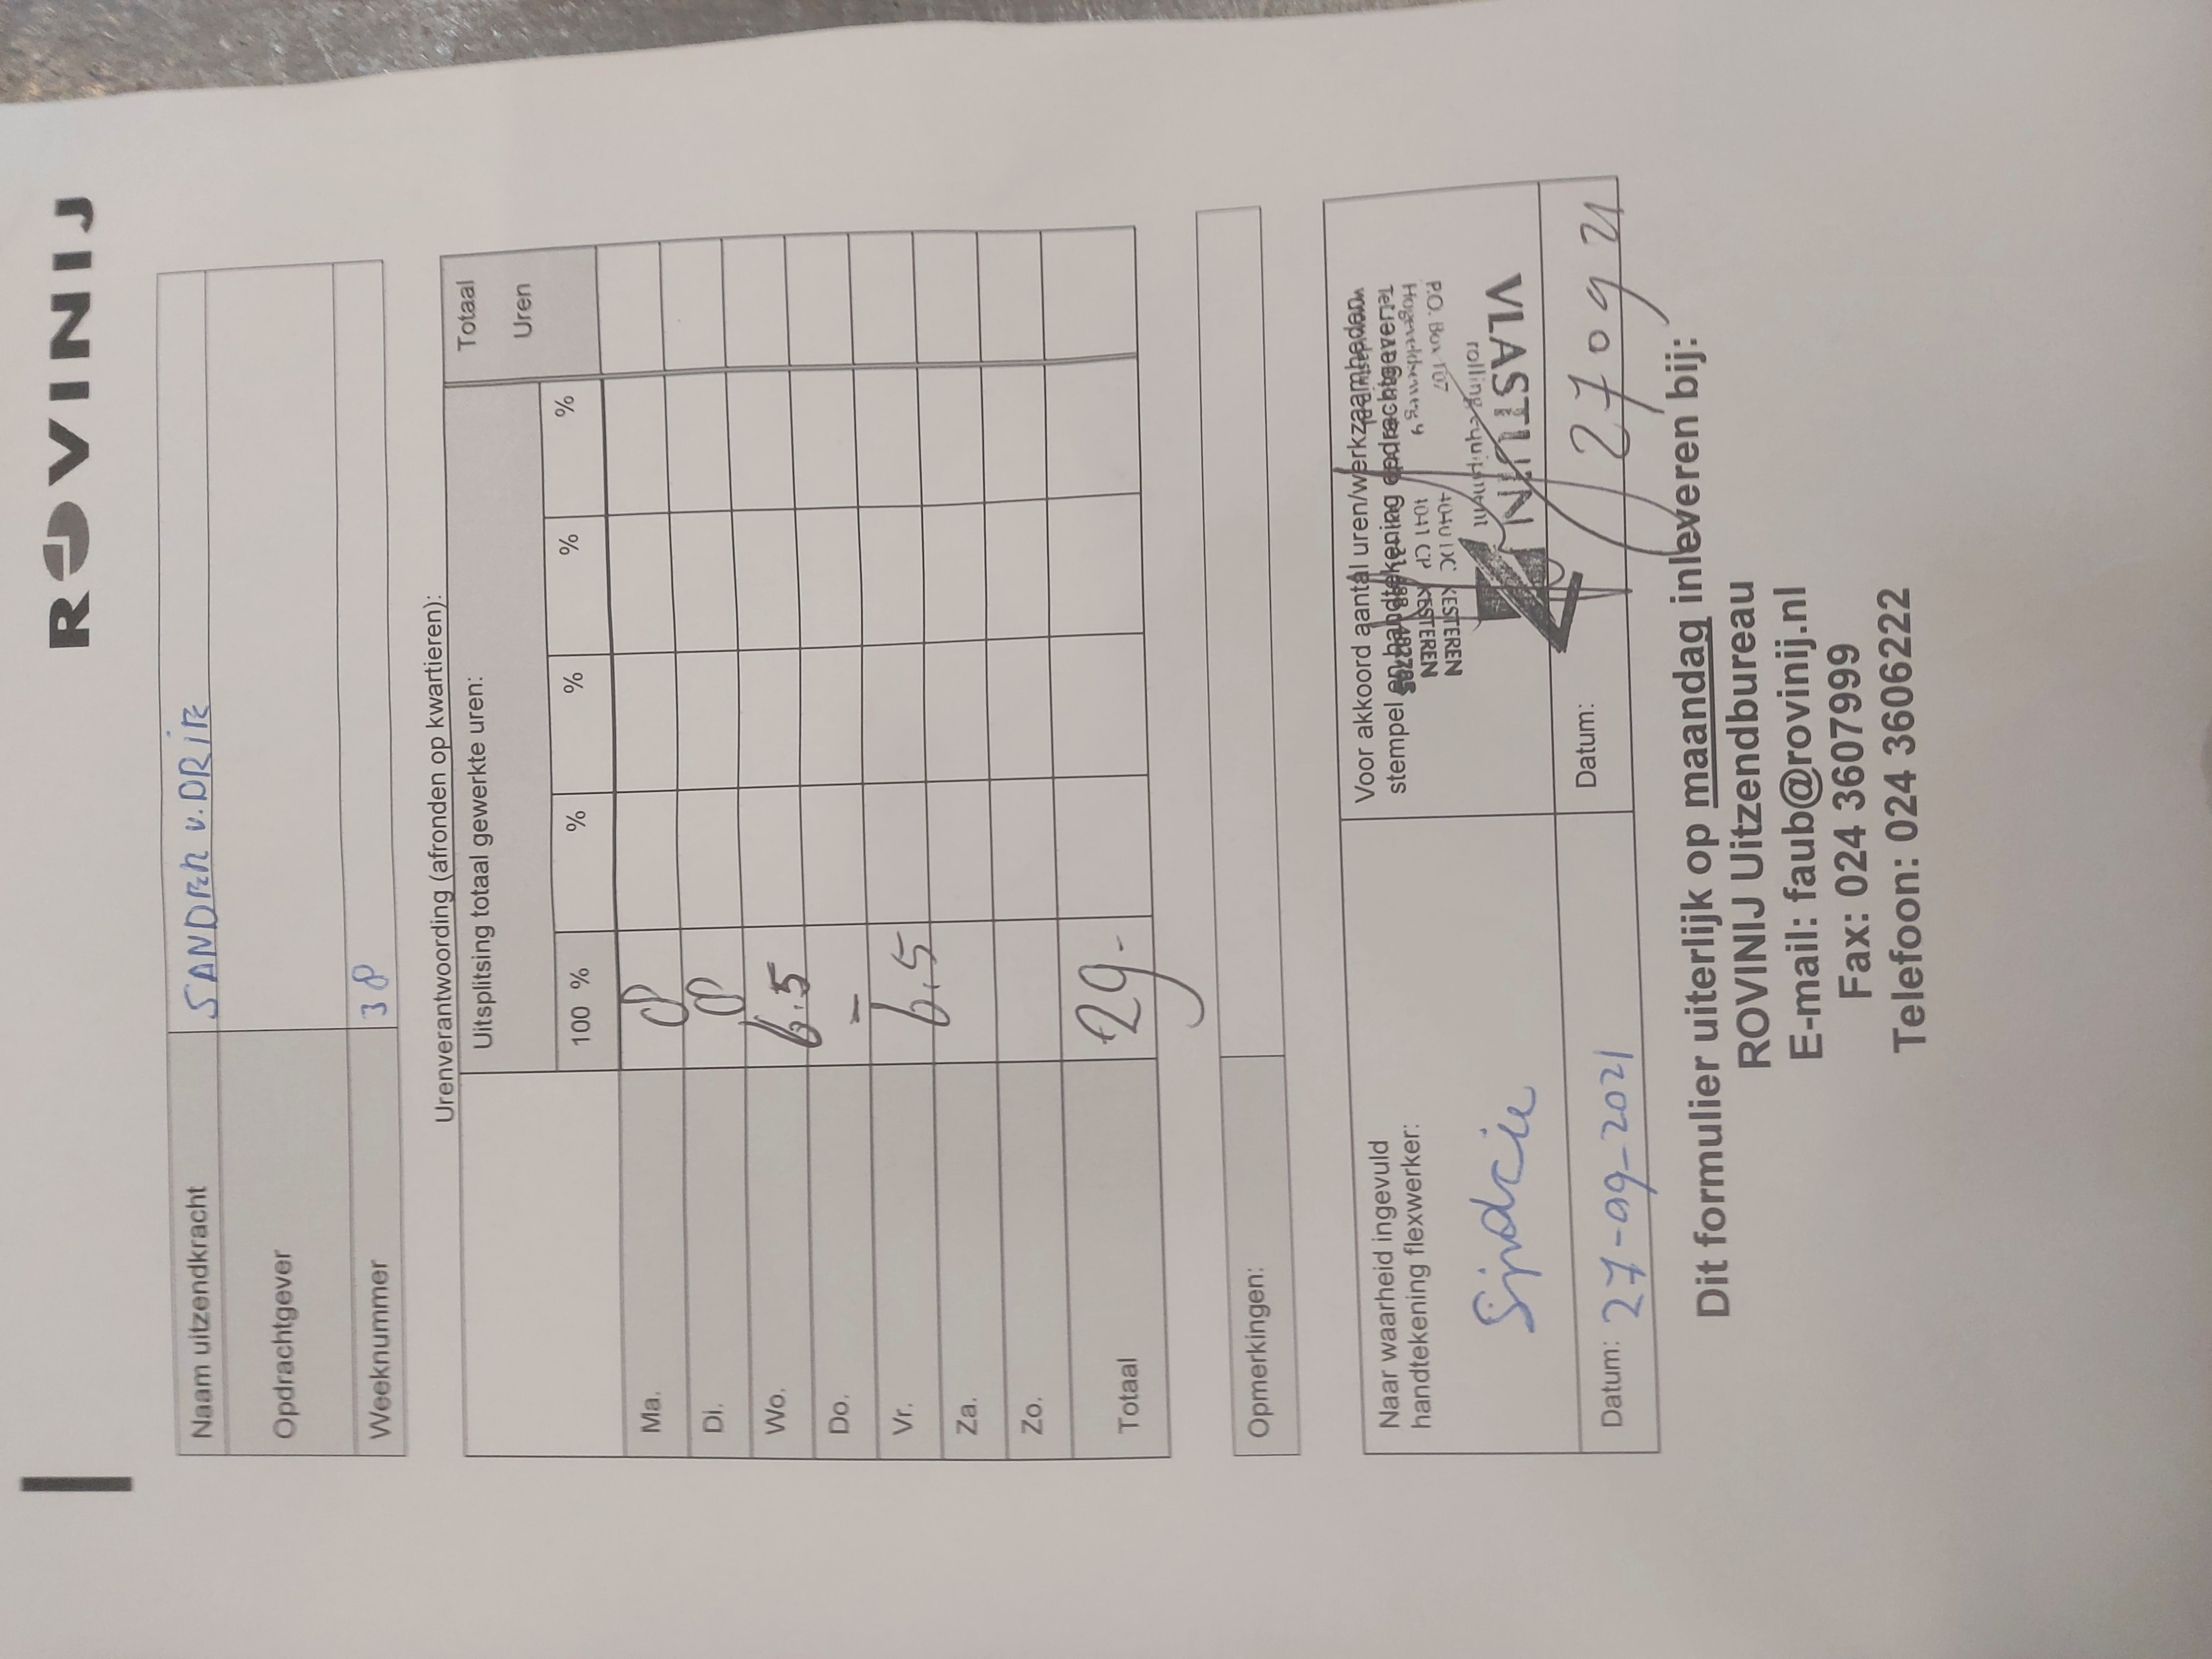 ROVINIJ
Naam uitzendkracht SANDER v. DRIE
Opdrachtgever
Weeknummer 38
Urenverantwoording (afronden op kwartieren):
Uitsplitsing totaal gewerkte uren: Totaal Uren
100 % % % % %
Ma. 8
Di. 8
Wo. 6.5
Do. –
Vr. 6,5
Za.
Zo.
Totaal 29-
Opmerkingen:
Naar waarheid ingevuld
handtekening flexwerker:
Datum: 27-09-2021
Voor akkoord aantal uren/werkzaamheden
stempel en handtekening opdrachtgever:
VLASTUIN
rolling equipment
P.O. Box 107 4040 DC KESTEREN
Hogeveldseweg 9 4041 CP KESTEREN
Datum: 27 09 21
Dit formulier uiterlijk op maandag inleveren bij:
ROVINIJ Uitzendbureau
E-mail: faub@rovinij.nl
Fax: 024 3607999
Telefoon: 024 3606222